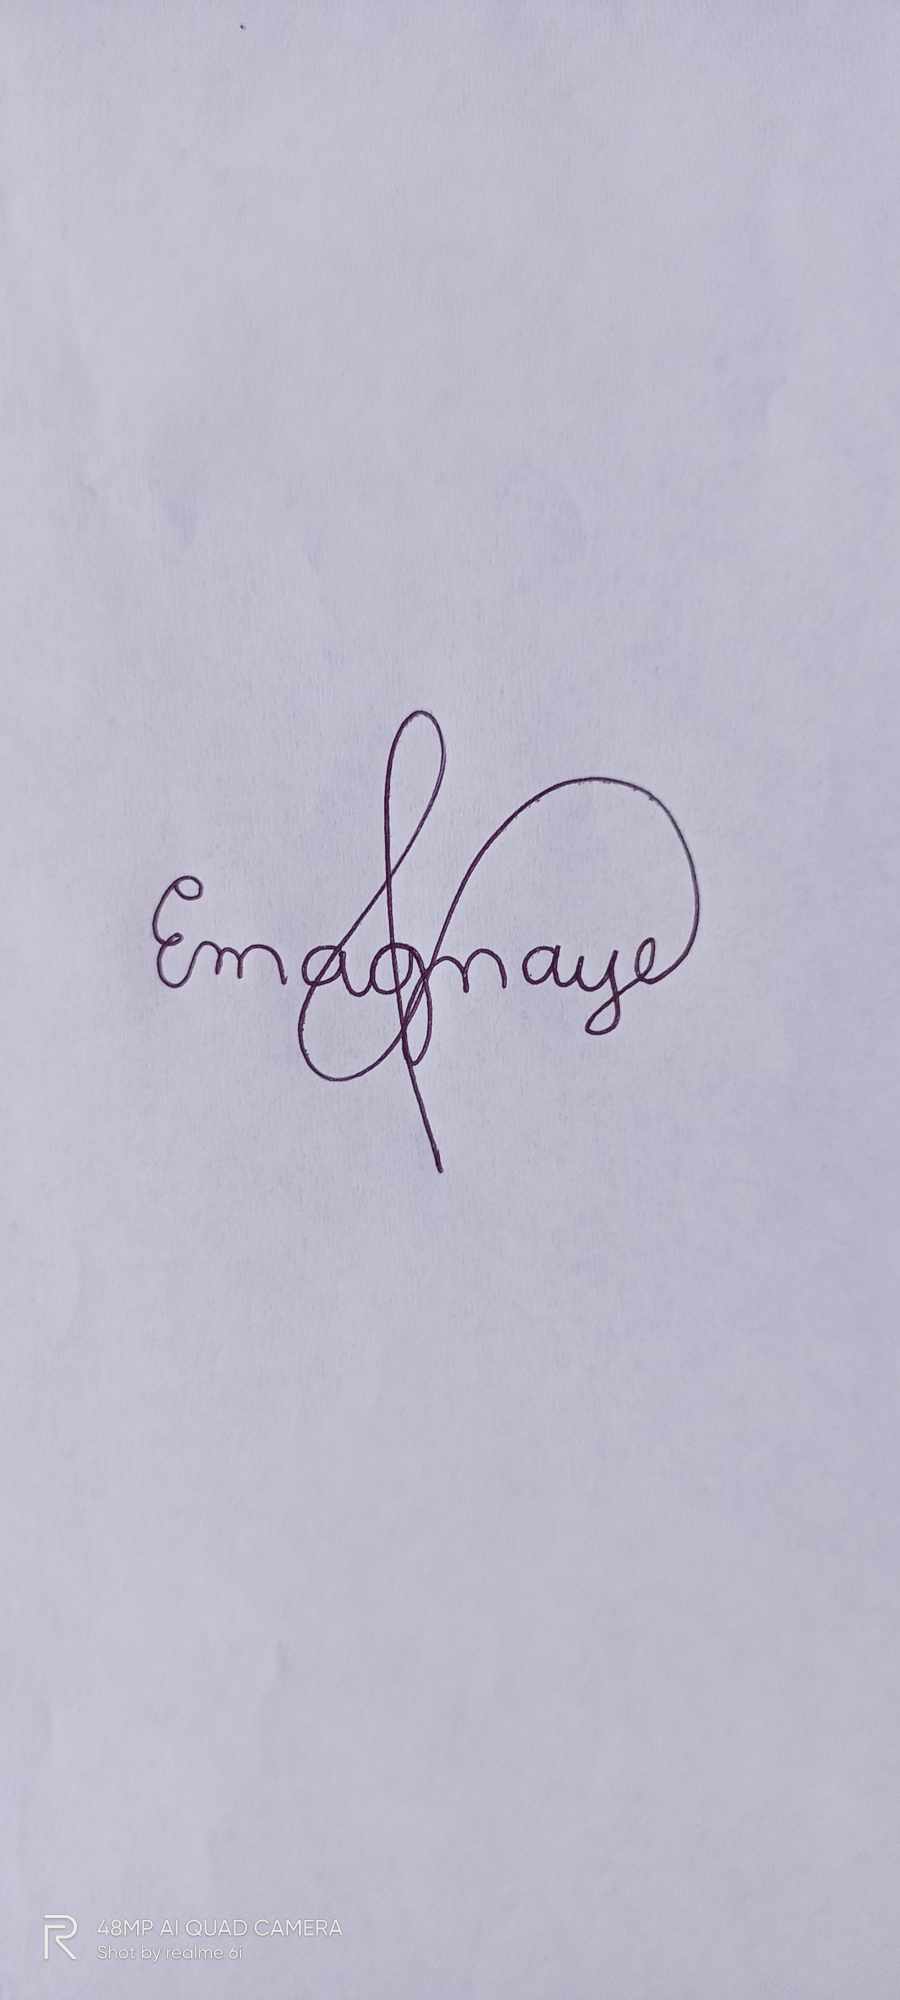 Emagnaye
48MP AI QUAD CAMERA
Shot by realme 6i